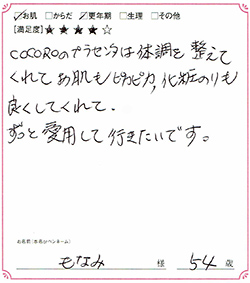 ☑お肌 □からだ ☑更年期 □生理 □その他
[満足度]★★★★☆
COCOROのプラセンタは体調を整えて
くれて お肌もピカピカ,化粧のりも
良くしてくれて.
ずっと愛用して行きたいです。
お名前(本名orペンネーム)
もなみ 様 54 歳